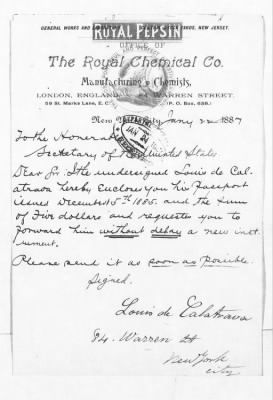 GENERAL WORKS AND
STOCK YARDS, NEW JERSEY.
ROYAL PEPSIN
OFFICE OF
The Royal Chemical Co.
Manufacturing Chemists,
LONDON, ENGLAND
WARREN STREET.
59 St. Marks Lane, E. C.
(P. O. Box, 658.)
New York City Jany 22 1887
JAN 24
To the Honorable
Secretary of the United States
Dear Sir. I the undersigned Louis de Cal-
atrava hereby Encloses you his Passport
issued December 15th 1885. and the sum
of Five dollars and requestes you to
forward him without delay a new inst
rument.
Please send it as soon as posible.
Signed.
Louis de Calatrava
94. Warren St
New York
city